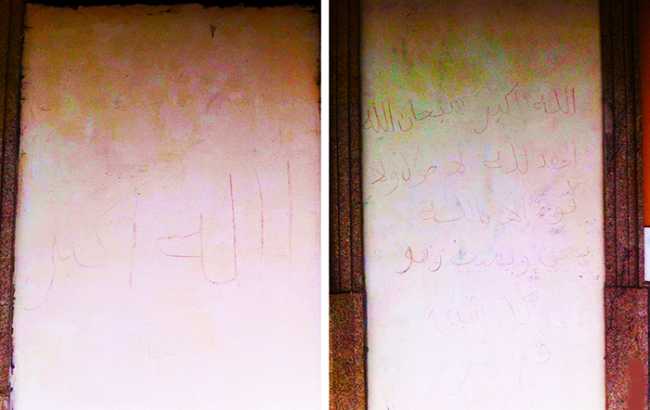 الله اكبر
الله اكبر سبحان الله
الحمد لله لا حول ولا
قوة الا بالله
يحي ويميت وهو
كل شيء